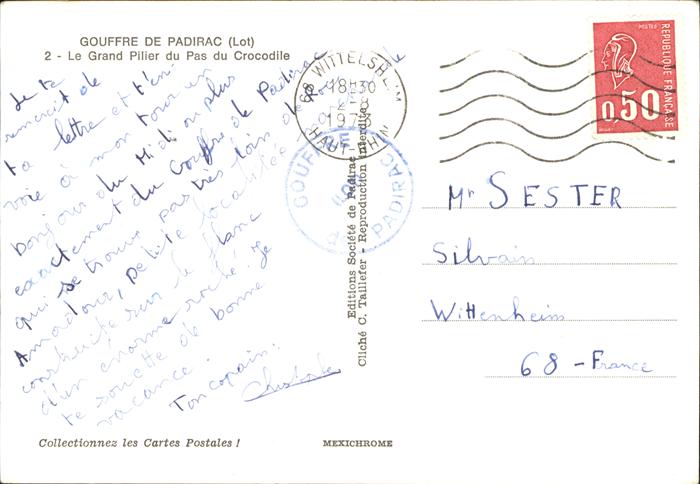 GOUFFRE DE PADIRAC (Lot)
2 - Le Grand Pilier du Pas du Crocodile
Je te
remercie de
ta lettre et t'en
voie à mon tour un
bonjour du Midi ou plus
exactement du Gouffre de Padirac
qui se trouve pas très loin de
Amadour, petite localitée
construite sur le flanc
d'un énorme roché. Je
te souette de bonne
vacance.
Ton copain:
Christophe
Collectionnez les Cartes Postales !
MEXICHROME
Editions Société de Padirac
Cliché C. Taillefer - Reproduction interdite
68 WITTELSHEIM
18H30
2-8
HAUT-RHIN
GOUFFRE
PADIRAC
POSTES
REPUBLIQUE FRANÇAISE
0,50
Mr SESTER
Silvain
Wittenheim
68 - France